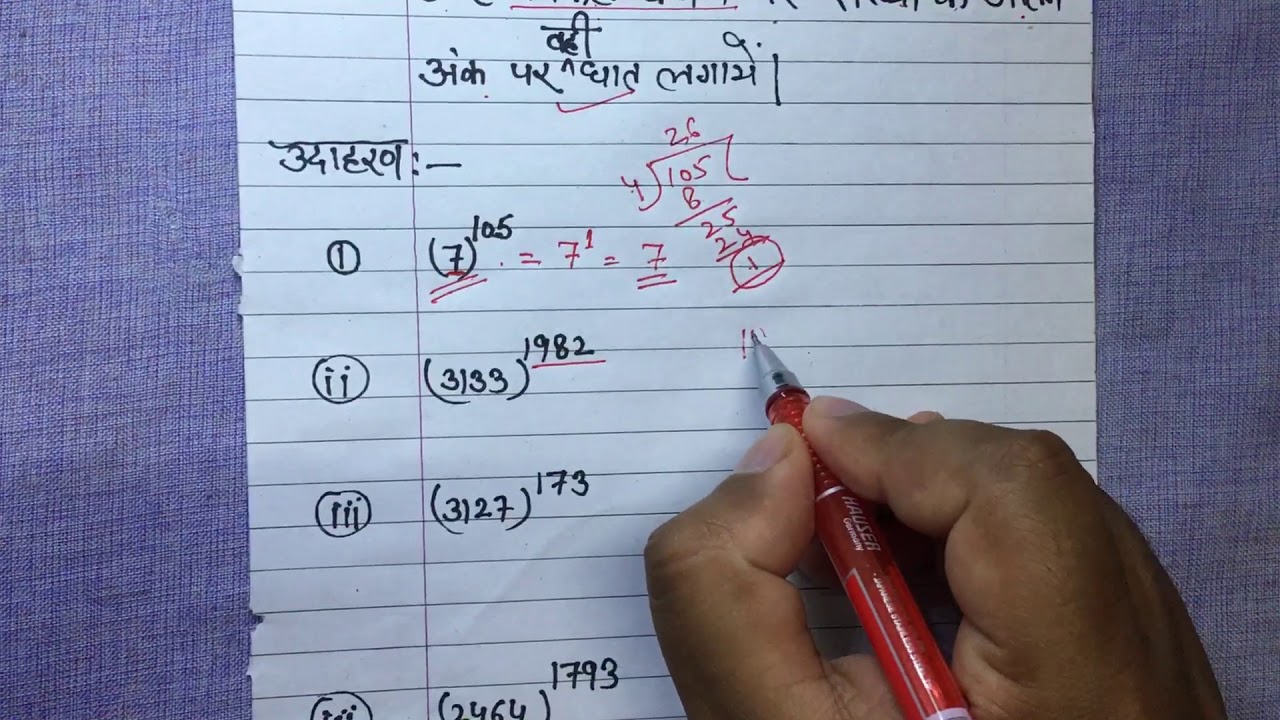 वही
अंक पर ^ घात लगायें।
उदाहरण:—
26
4 105
8
25
24
1
① (7)^105 = 7^1 = 7
(ii) (3133)^1982
(iii) (3127)^173
(2464)^1793
HAUSER
Germany